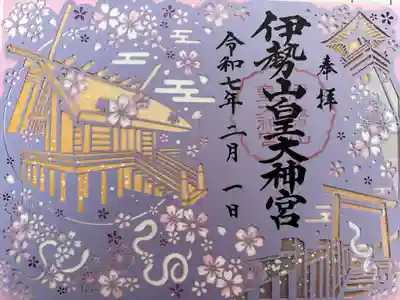 奉拝
伊勢山皇大神宮
令和七年 二月 一日